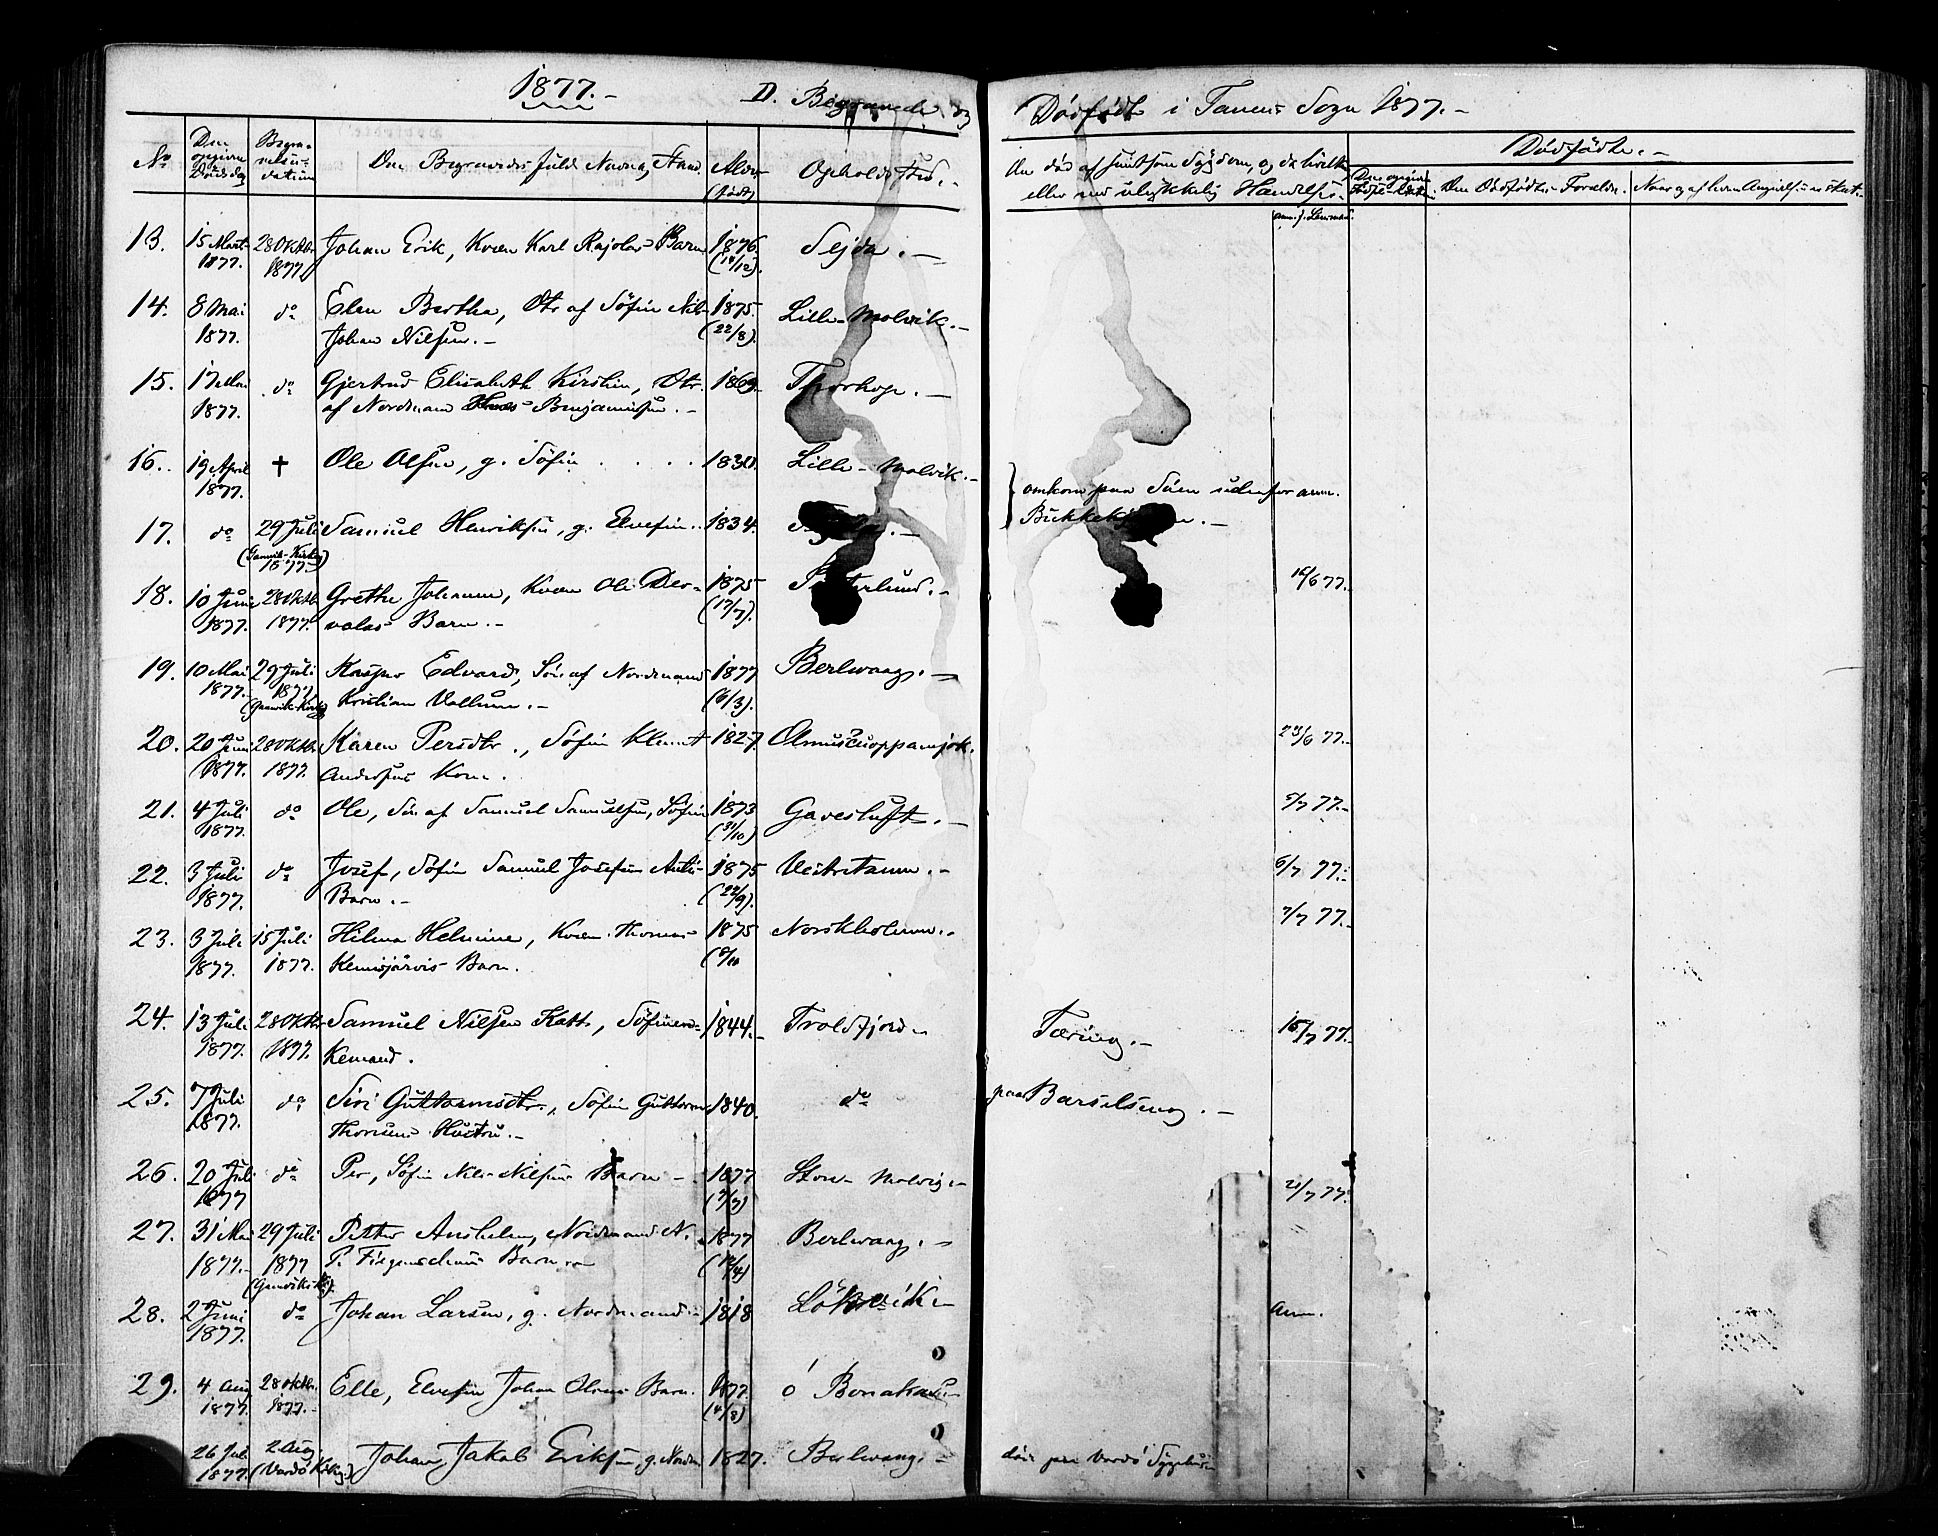 1877.- D. Begravede og Dødfødte i Tanens Sogn 1877.-
No Den opgivne Dødsdag Begravelsesdatum Den Begravedes fulde Navn og Stand Alder (født) Opholdssted.
Om død af smitsom Sygdom, og da hvilken eller ved ulykkelig Hændelse.
Dødfødte.-
Den Dødfødtes Forældre.
anm. f. Lensmand.
13. 15 Marts 1877. 28 Oktbr 1877 Johan Erik, Kvæn Karl Rajolas Barn 1876 (14/12). Sejda.-
14. 8 Mai 1877. do Elen Berthe, Dtr af Søfin Nils Johan Nilsen.- 1875. (22/8). Lille-Molvik.-
15. 17 Mai 1877. do Gjertrud Elisabeth Kirstin, Dtr. af Nordmand Benjaminsen.- 1869 Thorhop.-
16. 19 April 1877. † Ole Olsen, g. Søfin . . . . 1830. Lille-Molvik.- omkom paa Søen udenfor
17. do 29 Juli (Gamvik-Kirkeg) 1877. Samuel Henriksen, g. Elvefin.. 1834.
18. 10 Juni 1877. 28 Oktbr 1877. Grethe Johanne, Kvæn Ole Dervolas Barn.- 1875 (17/7). 12/6 77.
19. 10 Mai 1877. 29 Juli 1877 (Gamvik-Kirkeg) Kasper Edvard, Søn af Nordmand Kristian Vollum.- 1877 (6/3). Berlevaag.-
20. 20 Juni 1877. 28 Oktbr 1877. Karen Persdtr., Søfin Klemet Andersens Kone. 1827. 23/6 77.-
21. 4 Juli 1877. do Ole, Søn af Samuel Samuelsen, Søfin 1873 (31/10) Gavesluft.- 5/7 77.-
22. 3 Juli 1877. do Josef, Søfin Samuel Josefsen Barn.- 1875 (22/9). Vestretanen.- 6/7 77.
23. 3 Juli 1877. 15 Juli 1877. Hilma Helmine, Kvæn Thomas Kemijärvis Barn. 1875 Norskholmen.- 7/7 77.-
24. 13 Juli 1877. 28 Oktbr 1877. Samuel Nilsen Katt, Søfin 1844.- Troldfjord.- Tæring.- 15/7 77.
25. 7 Juli 1877. do Siri Guttormsdtr., Søfin Guttorm Hustru.- 1840. do paa Barselseng.-
26. 20 Juli 1877 do Per, Søfin Nils Nilsens Barn- 1877 (7/7) Store-Molvig.- 21/7 77.
27. 31 Mai 1877.- 29 Juli 1877 (Gamvik Kg). Petter Anshelm, Nordmand N. P. Figenschaus Barn.- 1877 (12/4) Berlevaag.-
28. 2 Juni 1877. do Johan Larsen, g. Nordmand.- 1818 Løkvik- Anm.
29. 4 Aug 1877. 28 Oktbr. 1877.- Elle, Elvefin Johan Olsens Barn. 1877. (4/8)
26 Juli 1877. 2 Aug (Vardø Kirkeg.) Johan Jakob Eriksen, g. Nordm 1827. Berlevaag.- død paa Vardø Sygehus